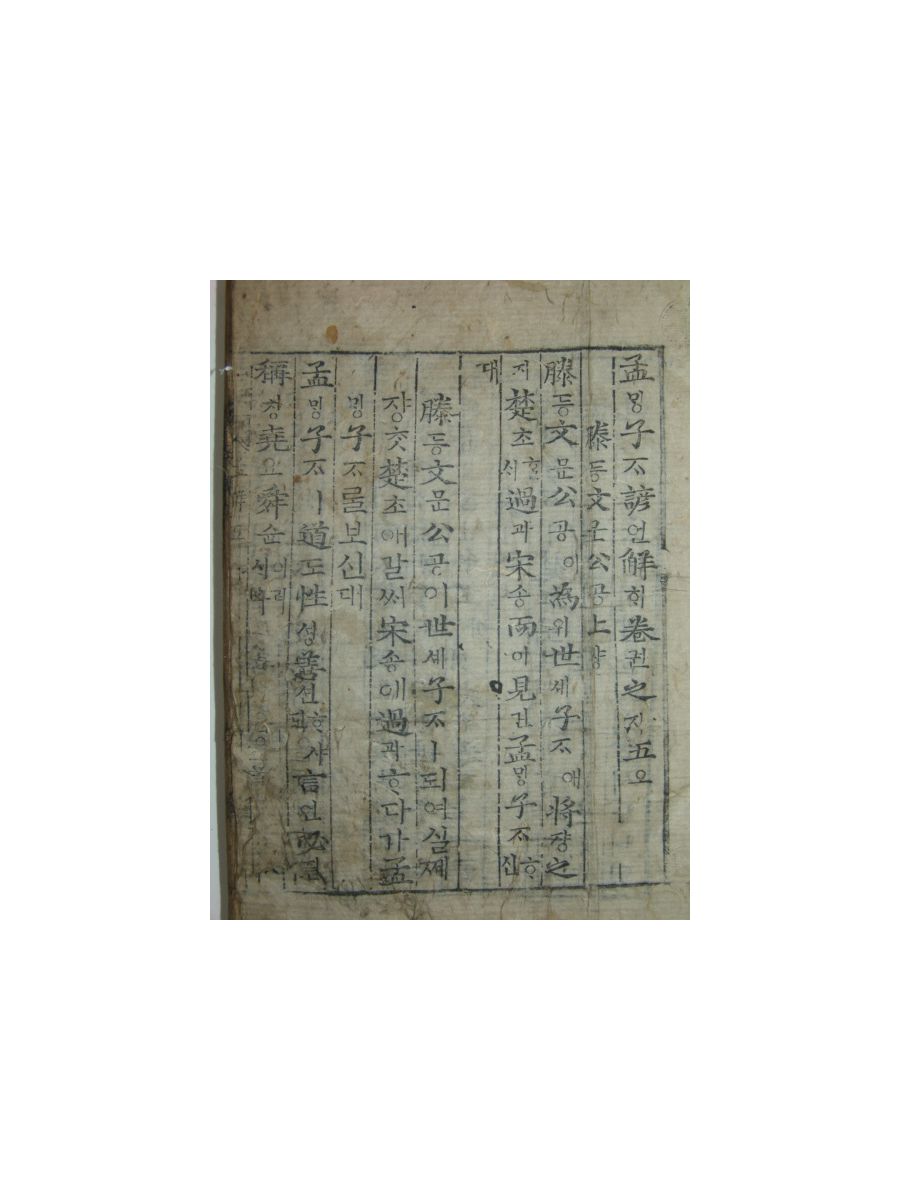 孟ᄆᆡᆼ子ᄌᆞ諺언解ᄒᆡ卷권之지五오
滕등文문公공上샹
滕등文문公공이爲위世셰子ᄌᆞ애將쟝之
지楚초ᄒᆞ실ᄉᆡ過과宋송而이見견孟ᄆᆡᆼ子ᄌᆞᄒᆞ신
대
滕등文문公공이世셰子ᄌᆞㅣ되여실제
쟝ᄎᆞᆺ楚초애갈ᄊᆡ宋송애過과ᄒᆞ다가孟
ᄆᆡᆼ子ᄌᆞᄅᆞᆯ보신대
孟ᄆᆡᆼ子ᄌᆞㅣ道도性셩善션ᄒᆞ샤ᄃᆡ言언必필
稱칭堯요舜순이러시다